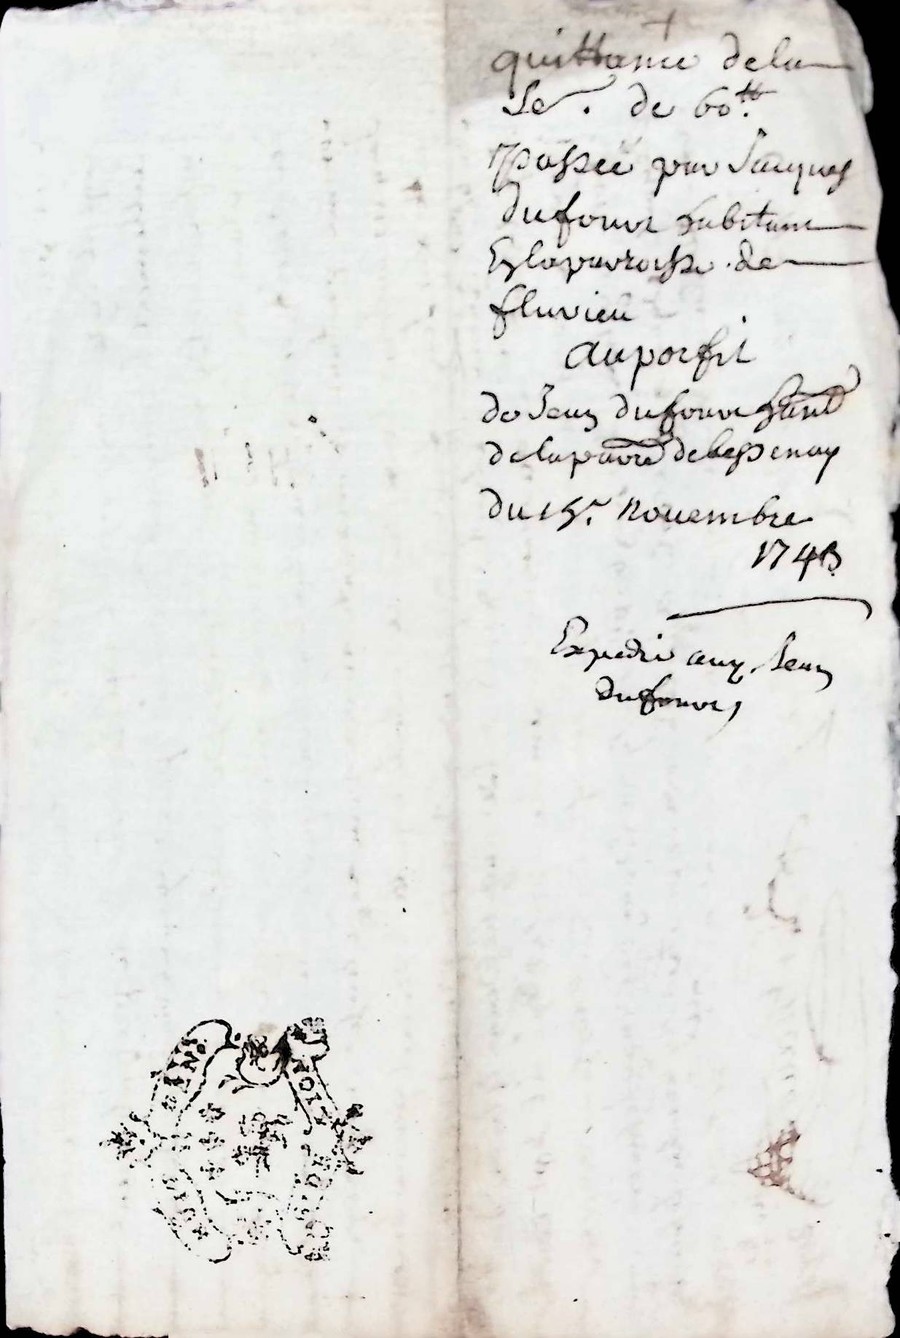 quittance dela
Se. de 60.tt
passée par Jacques
dufour habitant
En laparroisse de
fluvieu
auporfit
de Jean dufour habitant
delaparre debessenay
du 15.e Novembre
1743
Expedié aux Jean
dufour,
GEN.